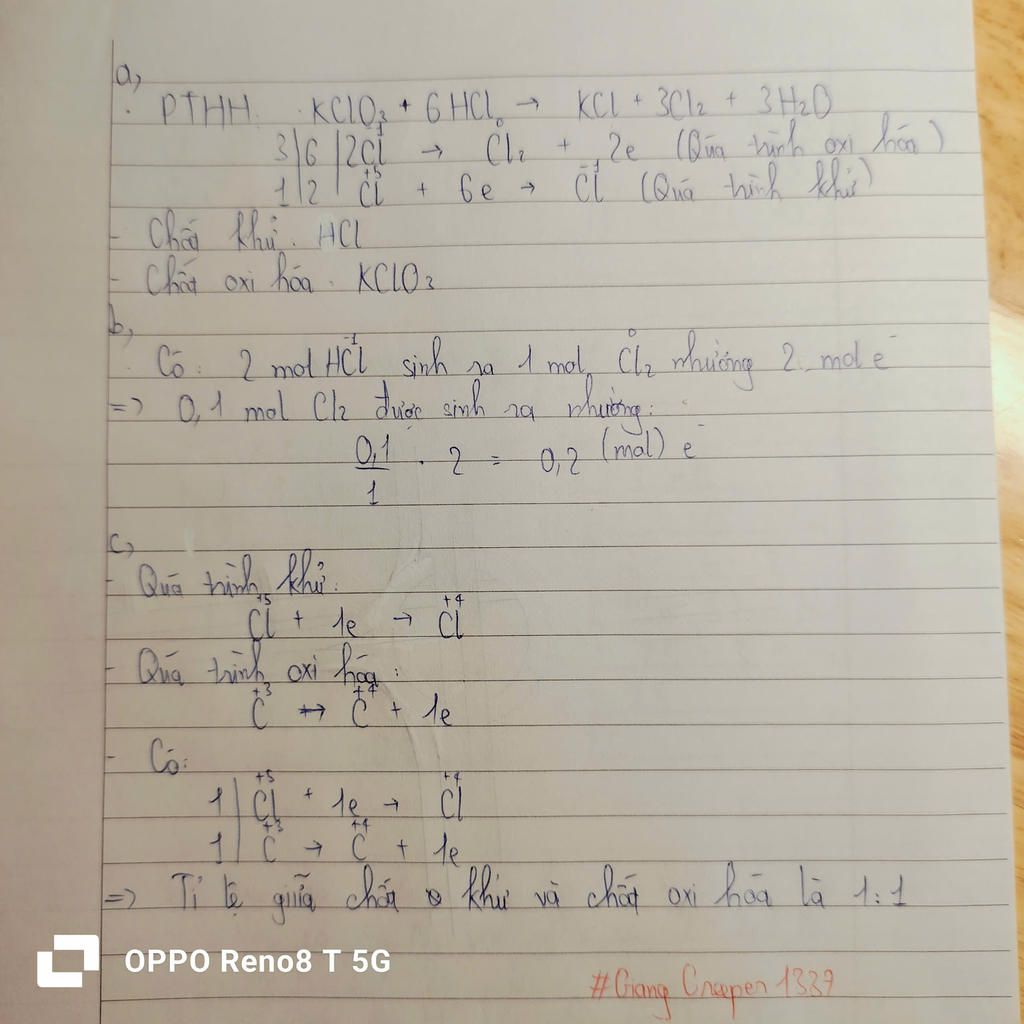 a,
PTHH: KClO3 + 6HCl → KCl + 3Cl2 + 3H2O
3|6|2Cl⁻¹ → Cl2⁰ + 2e (Quá trình oxi hóa)
1|2|Cl⁺⁵ + 6e → Cl⁻¹ (Quá trình khử)
- Chất khử: HCl
- Chất oxi hóa: KClO3
b,
Có: 2 mol HCl⁻¹ sinh ra 1 mol Cl2⁰ nhường 2 mol e⁻
=> 0,1 mol Cl2 được sinh ra nhường:
0,1/1 . 2 = 0,2 (mol) e⁻
c,
- Quá trình khử:
Cl⁺⁵ + 1e → Cl⁺⁴
- Quá trình oxi hóa:
C⁺³ → C⁺⁴ + 1e
- Có:
1| Cl⁺⁵ + 1e → Cl⁺⁴
1| C⁺³ → C⁺⁴ + 1e
=> Tỉ lệ giữa chất khử và chất oxi hóa là 1:1
OPPO Reno8 T 5G
#Giang Creeper 1337